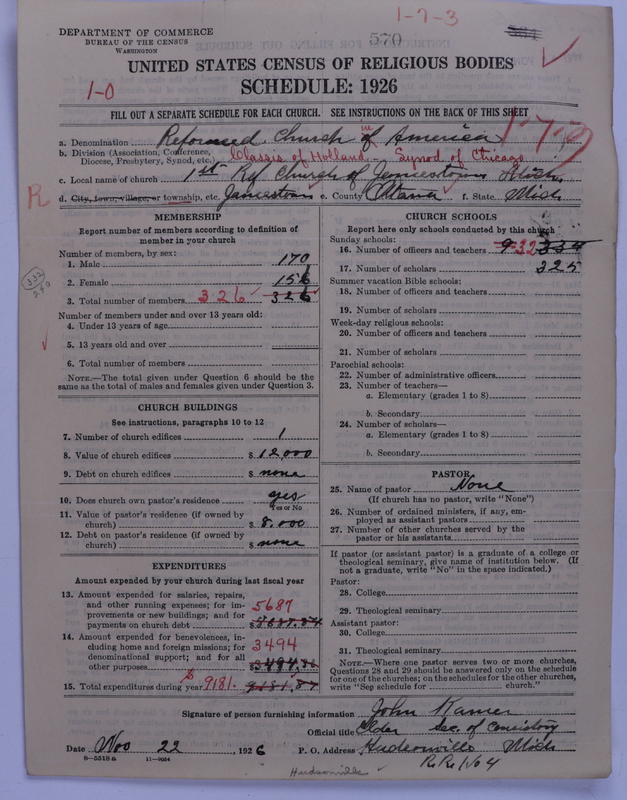 1-7-3
570
DEPARTMENT OF COMMERCE
BUREAU OF THE CENSUS
WASHINGTON
UNITED STATES CENSUS OF RELIGIOUS BODIES
SCHEDULE: 1926
1-0
FILL OUT A SEPARATE SCHEDULE FOR EACH CHURCH. SEE INSTRUCTIONS ON THE BACK OF THIS SHEET
a. Denomination Reformed Church in America
b. Division (Association, Conference, Diocese, Presbytery, Synod, etc.) Classis of Holland - Synod of Chicago
c. Local name of church 1st Ref Church of Jamestown Mich.
R
d. City, town, village, or township, etc. Jamestown e. County Ottawa f. State Mich
MEMBERSHIP
Report number of members according to definition of member in your church
Number of members, by sex:
1. Male 170
2. Female 156
3. Total number of members 326 326
Number of members under and over 13 years old:
4. Under 13 years of age
5. 13 years old and over
6. Total number of members
NOTE.—The total given under Question 6 should be the same as the total of males and females given under Question 3.
CHURCH BUILDINGS
See instructions, paragraphs 10 to 12
7. Number of church edifices 1
8. Value of church edifices $ 12,000
9. Debt on church edifices $ none
10. Does church own pastor's residence yes
Yes or No
11. Value of pastor's residence (if owned by church) $ 8,000
12. Debt on pastor's residence (if owned by church) $ none
EXPENDITURES
Amount expended by your church during last fiscal year
13. Amount expended for salaries, repairs, and other running expenses; for improvements or new buildings; and for payments on church debt 5687
14. Amount expended for benevolences, including home and foreign missions; for denominational support; and for all other purposes 3494
15. Total expenditures during year $ 9181. 9181.87
CHURCH SCHOOLS
Report here only schools conducted by this church
Sunday schools:
16. Number of officers and teachers 32
17. Number of scholars 325
Summer vacation Bible schools:
18. Number of officers and teachers
19. Number of scholars
Week-day religious schools:
20. Number of officers and teachers
21. Number of scholars
Parochial schools:
22. Number of administrative officers
23. Number of teachers—
a. Elementary (grades 1 to 8)
b. Secondary
24. Number of scholars—
a. Elementary (grades 1 to 8)
b. Secondary
PASTOR
25. Name of pastor None
(If church has no pastor, write "None")
26. Number of ordained ministers, if any, employed as assistant pastors
27. Number of other churches served by the pastor or his assistants
If pastor (or assistant pastor) is a graduate of a college or theological seminary, give name of institution below. (If not a graduate, write "No" in the space indicated.)
Pastor:
28. College
29. Theological seminary
Assistant pastor:
30. College
31. Theological seminary
NOTE.—Where one pastor serves two or more churches, Questions 28 and 29 should be answered only on the schedule for one of the churches; on the schedules for the other churches, write "See schedule for church."
Signature of person furnishing information John Kamer
Official title Elder Sec. of Consistory
Date Nov 22, 1926 P. O. Address Hudsonville Mich
8-5518a 11-9054
Hudsonville